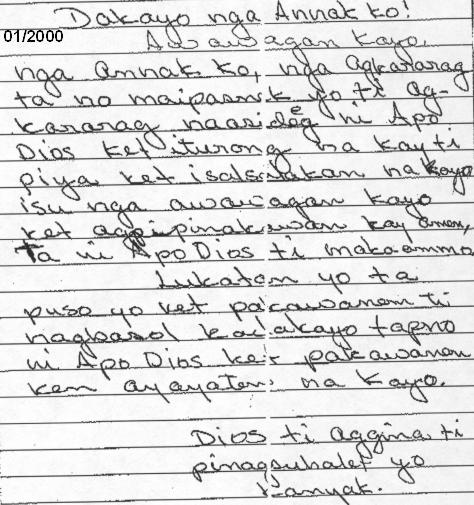 Dakayo nga Annak ko!
01/2000
Awawagan kayo,
nga annak ko, nga agkararag
ta no maipasnek yo ti ag-
kararag naasideg ni Apo
Dios ket iturong na kay ti
piya ket isalsalakan na kayo
isu nga awawagan kayo
ket agpipinakawan kay amon,
Ta ni Apo Dios ti makaammo
Lukatem yo ta
puso yo ket pakawanem ti
nagbasol kadakayo tapno
ni Apo Dios ket pakawanen
ken ayayaten na kayo.
Dios ti aggina ti
pinagsubalet yo
kanyak.